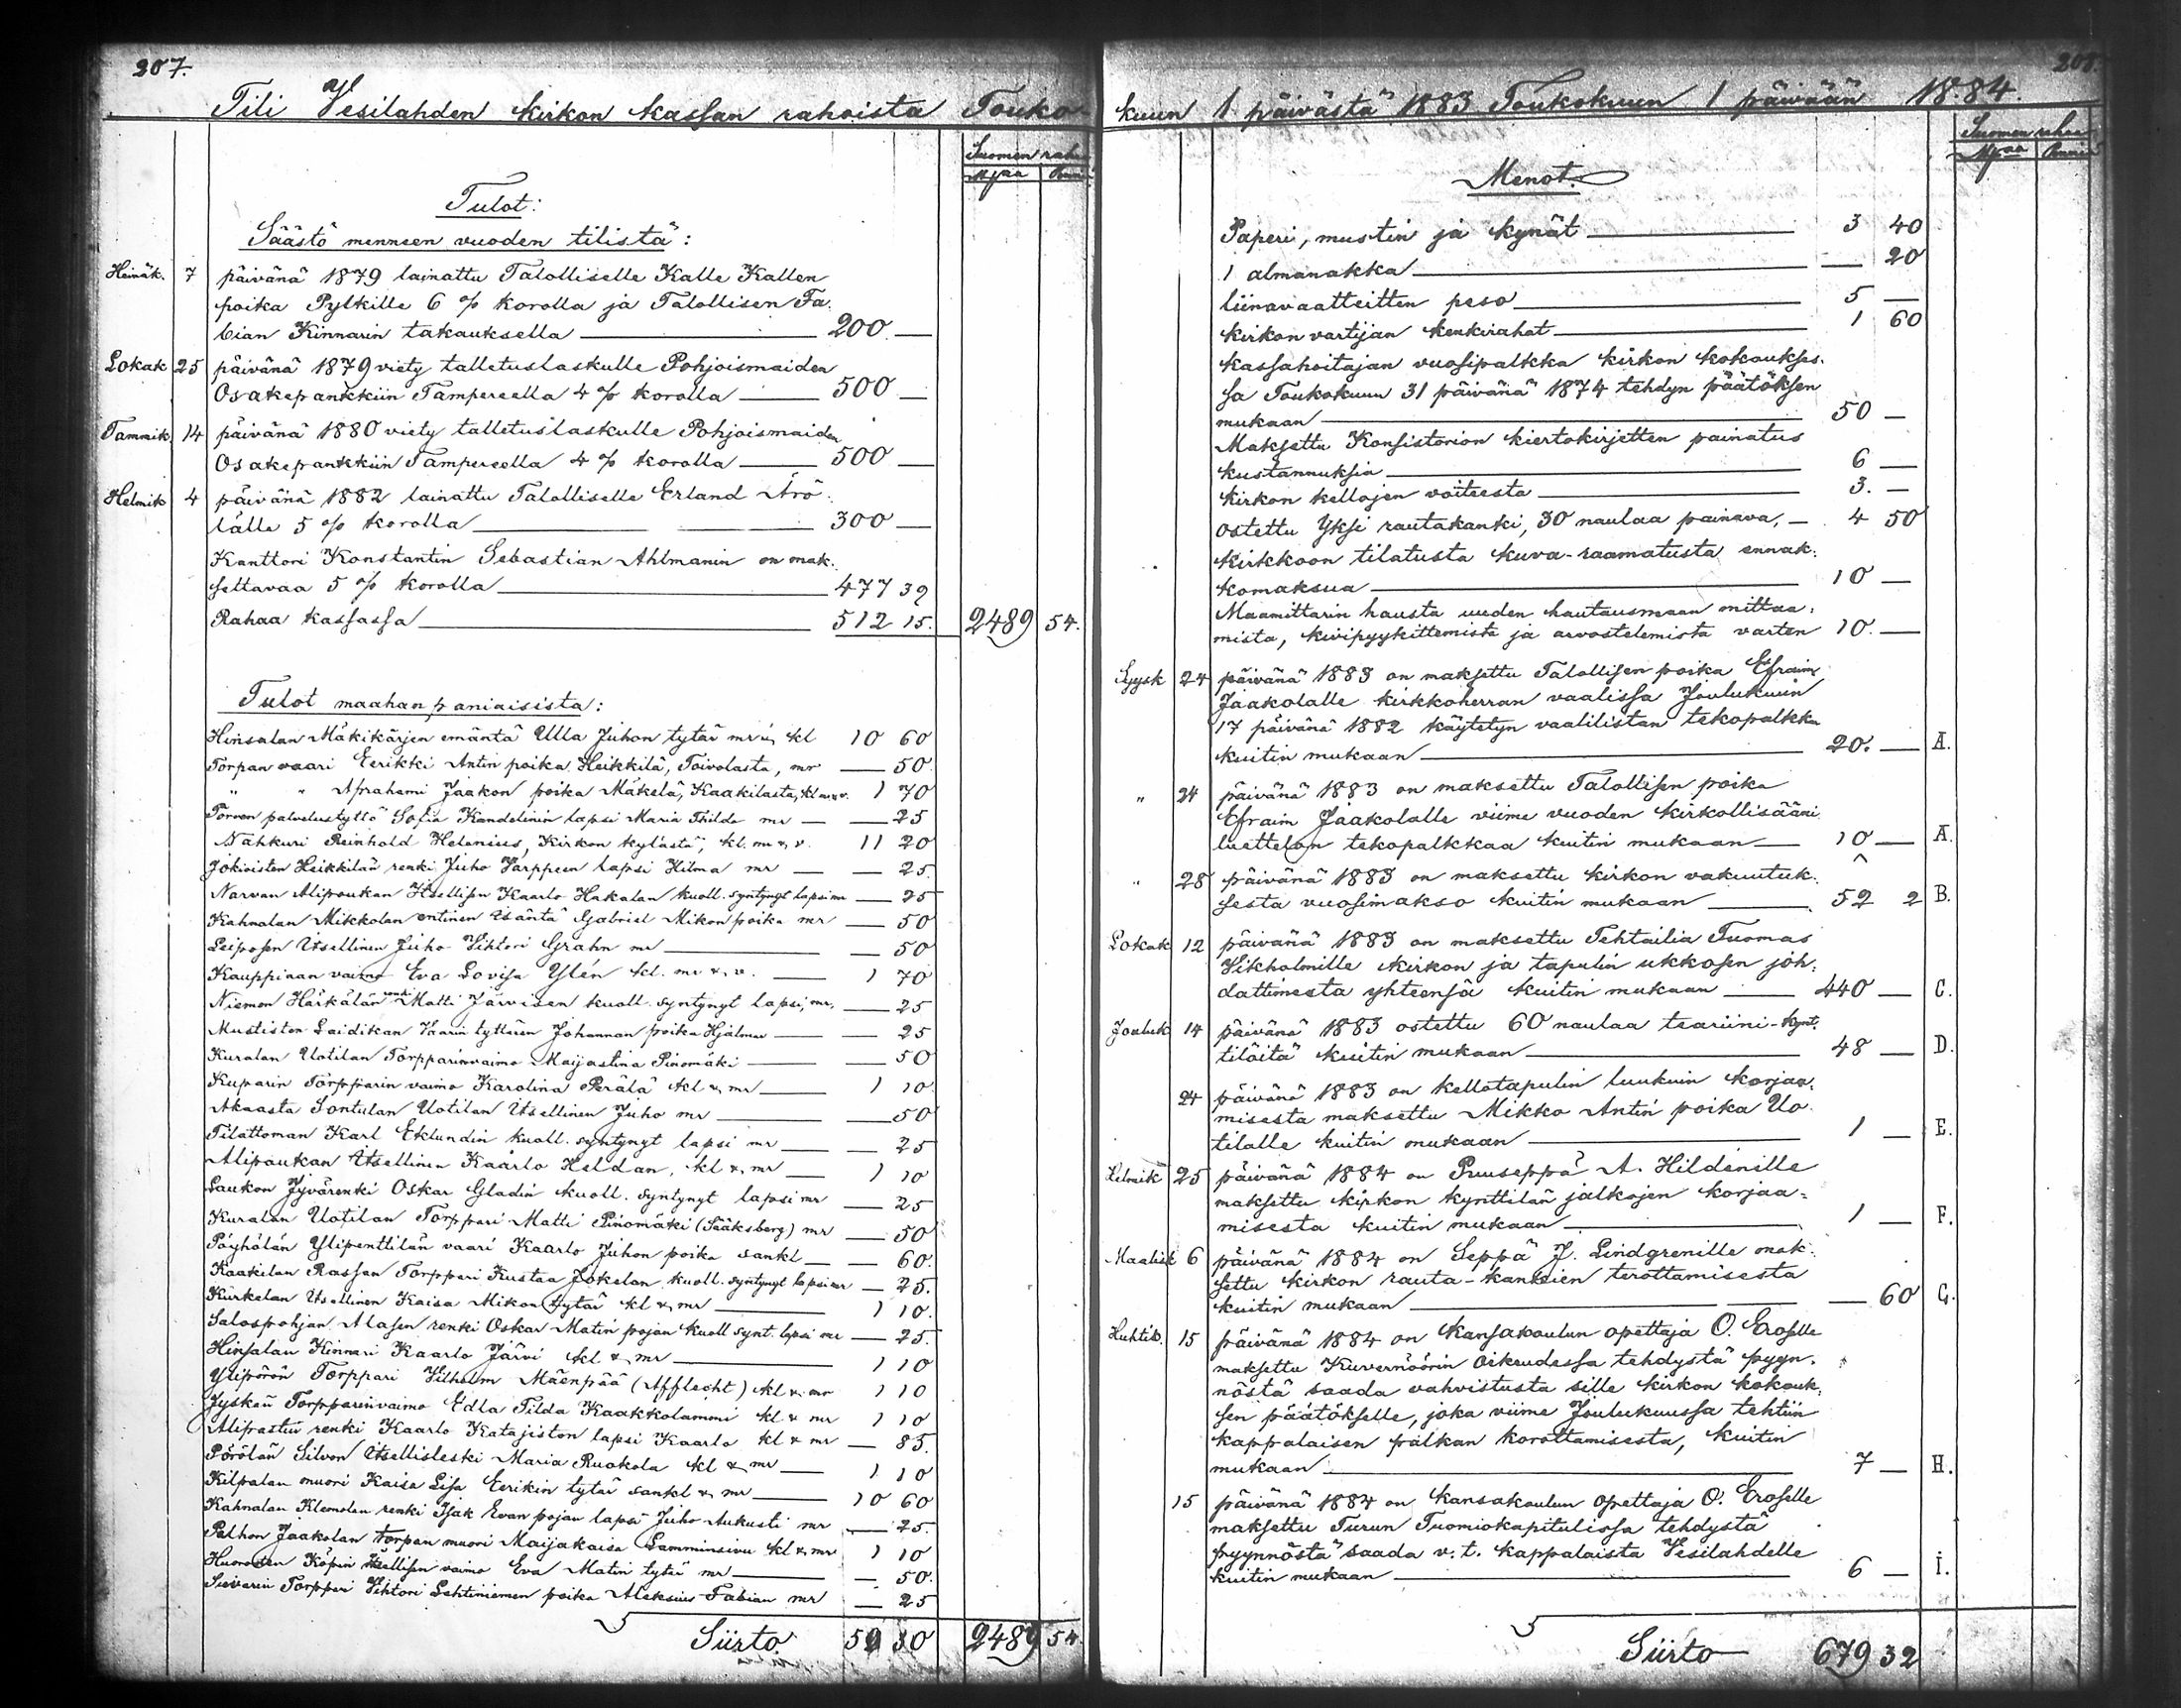 207.
Tili Vesilahden kirkon kassan rahoista Touko-
Suomen rahaa
Mrkaa Penniä
Tulot:
Säästö menneen vuoden tilistä:
Heinäk. 7 päivänä 1879 lainattu Talolliselle Kalle Kallen
poika Pylkille 6 % korolla ja Talollisen Fa-
bian Kinnarin takauksella 200 —
Lokak 25 päivänä 1879 viety talletuslaskulle Pohjoismaiden
Osakepankkiin Tampereella 4 % korolla 500 —
Tammik 14 päivänä 1880 viety talletuslaskulle Pohjoismaiden
Osakepankkiin Tampereella 4 % korolla 500 —
Helmik 4 päivänä 1882 lainattu Talolliselle Erland Arö-
lälle 5 % korolla 300 —
Kanttori Konstantin Sebastian Ahlmanin on mak-
settavaa 5 % korolla 477 39
Rahaa kassassa 512 15. 2489 54.
Tulot maahan paniaisista:
Hinsalan Mäkikärjen emäntä Ulla Juhon tytär mr & kl 10 60
Torpan vaari Eerikki Antin poika Heikkilä, Toivolasta, mr — 50
" " Aprahami Jaakon poika Mäkelä, Kaakilasta, kl mr & v. 1 70
Torven palvelustyttö Sofia Kandelinin lapsi Maria Thilda mr — 25
Nahkuri Reinhold Helenius, Kirkon kylästä, kl. mr & v. 11 20
Jokioisten Heikkilän renki Juho Varppeen lapsi Hilma mr — 25.
Narvan Alipoukan Itsellisen Kaarlo Hakalan kuoll. syntynyt lapsi mr — 25
Kahnalan Mikkolan entinen isäntä Gabriel Mikon poika mr — 50
Leiposen Itsellinen Juho Vihtori Grahn mr — 50
Kauppiaan vaimo Eva Lovisa Ylén kl. mr & v. 1 70
Niemen Härkälän renki Matti Järvisen kuoll. syntynyt lapsi, mr. — 25
Mustisten Laidikan Vaarin tyttären Johannan poika Hjalmar — 25
Kuralan Uotilan Torpparinvaimo Maijastina Pinomäki — 50
Kuparin Torpparin vaimo Karolina Perälä kl & mr 1 10.
Akaasta Sontulan Uotilan Itsellinen Juho mr — 50
Tilattoman Karl Eklundin kuoll. syntynyt lapsi mr — 25
Alipoukan Itsellinen Kaarlo Heldan, kl & mr 1 10
Laukon Jyvärenki Oskar Gladin kuoll. syntynyt lapsi mr — 25
Kuralan Uotilan Torppari Matti Pinomäki (Sääksberg) mr — 50
Pöyhölän Ylipenttilän vaari Kaarlo Juhon poika sankl — 60.
Kaakilan Rassan Torppari Kustaa Jokelan kuoll. syntynyt lapsi mr — 25.
Kurkelan Itsellinen Kaisa Mikon tytär kl & mr 1 10.
Salospohjan Alasen renki Oskar Matin pojan kuoll synt. lapsi mr — 25.
Hinsalan Kinnari Kaarlo Järvi kl & mr 1 10
Ylipörön Torppari Vilhelm Mäenpää (Afflecht) kl & mr 1 10
Jyskän Torpparinvaimo Edla Tilda Kaakkolammi kl & mr 1 10
Alipastin renki Kaarlo Katajiston lapsi Kaarlo kl & mr — 85.
Pörölän Silvon Itsellisleski Maria Ruokola kl & mr 1 10
Kilpalan muori Kaisa Lisa Eerikin tytär sankl & mr 10 60
Kahnalan Klemolan renki Isak Evan pojan lapsi Juho Aukusti mr — 25.
Palhon Jaakolan torpan muori Maijakaisa Lamminsivu kl & mr 1 10
Itsellisen vaimo Eva Matin tytär mr — 50.
Torppari Vihtori Lehtiniemen poika Aleksius Fabian mr — 25
Siirto 50 30 2489 54.
208.
kuun 1 päivästä 1883 Toukokuun 1 päivään 1884.
Suomen rahaa
Mrkaa Penniä
Menot.
Paperi, mustin ja kynät 3 40
1 almanakka — 20
liinavaatteitten peso 5 —
kirkon vartijan kenkirahat 1 60
kassahoitajan vuosipalkka kirkon kokoukses-
sa Toukokuun 31 päivänä 1874 tehdyn päätöksen
mukaan 50 —
Maksettu Konsistorion kiertokirjetten painatus
kustannuksia 6 —
kirkon kellojen voiteesta 3. —
ostettu Yksi rautakanki, 30 naulaa painava, — 4 50
kirkkoon tilatusta kuva-raamatusta ennak-
komaksua 10 —
Maamittarin hausta uuden hautausmaan mittaa-
mista, kivipyykittemista ja arvostelemista varten 10. —
Syysk 24 päivänä 1883 on maksettu Talollisen poika Efraim
Jaakolalle kirkkoherran vaalissa Joulukuun
17 päivänä 1882 käytetyn vaalilistan tekopalkka
kuitin mukaan 20. — A.
" 24 päivänä 1883 on maksettu Talollisen poika
Efraim Jaakolalle viime vuoden kirkollisääni
luettelon tekopalkkaa kuitin mukaan 10 — A.
" 28 päivänä 1883 on maksettu kirkon vakuutuk-
sesta vuosimakso kuitin mukaan 52 2 B.
Lokak 12 päivänä 1883 on maksettu Tehtailia Tuomas
Vikholmille kirkon ja tapulin ukkosen joh-
dattimesta yhteensä kuitin mukaan 440 — C.
Jouluk 14 päivänä 1883 ostettu 60 naulaa teariini-kynt-
tilöitä kuitin mukaan 48 — D.
24 päivänä 1883 on kellotapulin luukuin korjaa-
misesta maksettu Mikko Antin poika Uo-
tilalle kuitin mukaan 1 — E.
Helmik 25 päivänä 1884 on Puuseppä A. Hildénille
maksettu kirkon kynttilän jalkojen korjaa-
misesta kuitin mukaan 1 — F.
Maalisk 6 päivänä 1884 on Seppä J. Lindgrenille mak-
settu kirkon rauta-kankien terottamisesta
kuitin mukaan — 60 G.
Huhtik. 15 päivänä 1884 on Kansakoulun opettaja O. Eroselle
maksettu Kuvernöörin Oikeudessa tehdystä pyyn-
nöstä saada vahvistusta sille kirkon kokouk-
sen päätökselle, joka viime Joulukuussa tehtiin
kappalaisen palkan korottamisesta, kuitin
mukaan 7 — H.
15 päivänä 1884 on Kansakoulun opettaja O. Eroselle
maksettu Turun Tuomiokapitulissa tehdystä
pyynnöstä saada v.t. kappalaista Vesilahdelle
kuitin mukaan 6 — I.
Siirto 679 32